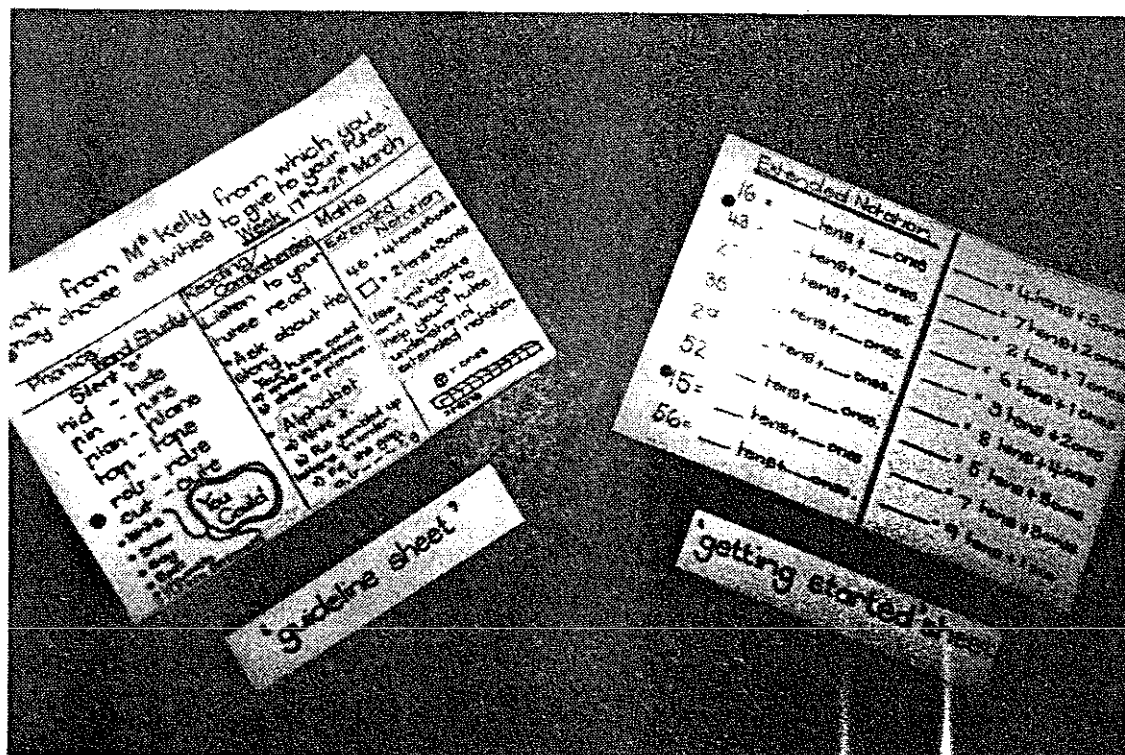 ork from Mˢ Kelly from which you
may choose activities to give to your tutee.
Week 17th - 21st March
Phonics Word Study
Silent "e"
hid - hide
pin - pine
plan - plane
cut - cute
You
Could
Reading
Comprehension
Listen to your
tutee read
Ask about the
story
Alphabet
Maths
Extended
Notation
46 = 4 tens + 6 ones
□ = 2 tens + 8 ones
Use "uni" blocks
and "longs" to
help your tutee
understand
extended notation
= ones
= tens
'guideline sheet'
Extended Notation
16 = __ tens + __ ones
43 - __ tens + __ ones.
2 - __ tens + __ ones.
36 - __ tens + __ ones.
29 - tens + __ ones.
52 - tens + __ ones.
15 = __ tens + __ ones
56 = __ tens + __ ones.
__ = 4 tens + 5 ones
__ = 7 tens + 2 ones
__ = 2 tens + 7 ones
__ = 6 tens + 1 ones
__ = 3 tens + 2 ones
__ = 8 tens + 4 ones
__ = 5 tens + 8 ones
__ = 7 tens + 8 ones.
__ = 9 tens + 1 one
'getting started' sheet